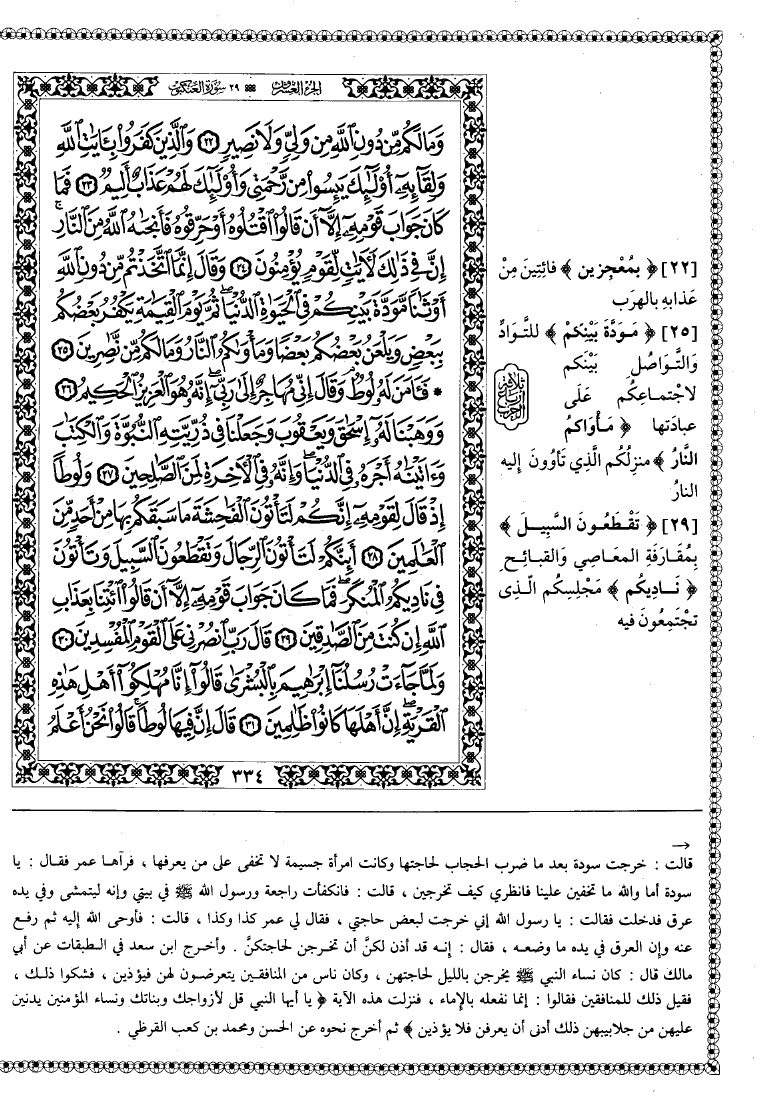 الجزء العشرون ٢٩ سورة العنكبوت
وَمَا لَكُم مِّن دُونِ ٱللَّهِ مِن وَلِيٍّ وَلَا نَصِيرٍ ٢٢ وَٱلَّذِينَ كَفَرُوا۟ بِـَٔايَـٰتِ ٱللَّهِ
وَلِقَآئِهِۦٓ أُو۟لَـٰٓئِكَ يَئِسُوا۟ مِن رَّحْمَتِى وَأُو۟لَـٰٓئِكَ لَهُمْ عَذَابٌ أَلِيمٌ ٢٣ فَمَا
كَانَ جَوَابَ قَوْمِهِۦٓ إِلَّآ أَن قَالُوا۟ ٱقْتُلُوهُ أَوْ حَرِّقُوهُ فَأَنجَىٰهُ ٱللَّهُ مِنَ ٱلنَّارِ ۚ
إِنَّ فِى ذَٰلِكَ لَـَٔايَـٰتٍ لِّقَوْمٍ يُؤْمِنُونَ ٢٤ وَقَالَ إِنَّمَا ٱتَّخَذْتُم مِّن دُونِ ٱللَّهِ
أَوْثَـٰنًا مَّوَدَّةَ بَيْنِكُمْ فِى ٱلْحَيَوٰةِ ٱلدُّنْيَا ۖ ثُمَّ يَوْمَ ٱلْقِيَـٰمَةِ يَكْفُرُ بَعْضُكُم
بِبَعْضٍ وَيَلْعَنُ بَعْضُكُم بَعْضًا وَمَأْوَىٰكُمُ ٱلنَّارُ وَمَا لَكُم مِّن نَّـٰصِرِينَ ٢٥
* فَـَٔامَنَ لَهُۥ لُوطٌ ۘ وَقَالَ إِنِّى مُهَاجِرٌ إِلَىٰ رَبِّىٓ ۖ إِنَّهُۥ هُوَ ٱلْعَزِيزُ ٱلْحَكِيمُ ٢٦
وَوَهَبْنَا لَهُۥٓ إِسْحَـٰقَ وَيَعْقُوبَ وَجَعَلْنَا فِى ذُرِّيَّتِهِ ٱلنُّبُوَّةَ وَٱلْكِتَـٰبَ
وَءَاتَيْنَـٰهُ أَجْرَهُۥ فِى ٱلدُّنْيَا ۖ وَإِنَّهُۥ فِى ٱلْـَٔاخِرَةِ لَمِنَ ٱلصَّـٰلِحِينَ ٢٧ وَلُوطًا
إِذْ قَالَ لِقَوْمِهِۦٓ إِنَّكُمْ لَتَأْتُونَ ٱلْفَـٰحِشَةَ مَا سَبَقَكُم بِهَا مِنْ أَحَدٍ مِّنَ
ٱلْعَـٰلَمِينَ ٢٨ أَئِنَّكُمْ لَتَأْتُونَ ٱلرِّجَالَ وَتَقْطَعُونَ ٱلسَّبِيلَ وَتَأْتُونَ
فِى نَادِيكُمُ ٱلْمُنكَرَ ۖ فَمَا كَانَ جَوَابَ قَوْمِهِۦٓ إِلَّآ أَن قَالُوا۟ ٱئْتِنَا بِعَذَابِ
ٱللَّهِ إِن كُنتَ مِنَ ٱلصَّـٰدِقِينَ ٢٩ قَالَ رَبِّ ٱنصُرْنِى عَلَى ٱلْقَوْمِ ٱلْمُفْسِدِينَ ٣٠
وَلَمَّا جَآءَتْ رُسُلُنَآ إِبْرَٰهِيمَ بِٱلْبُشْرَىٰ قَالُوٓا۟ إِنَّا مُهْلِكُوٓا۟ أَهْلِ هَـٰذِهِ
ٱلْقَرْيَةِ ۖ إِنَّ أَهْلَهَا كَانُوا۟ ظَـٰلِمِينَ ٣١ قَالَ إِنَّ فِيهَا لُوطًا ۚ قَالُوا۟ نَحْنُ أَعْلَمُ
٣٣٤
[٢٢] ﴿ بمُعْجِزين ﴾ فائِتِينَ مِنْ
عَذابهِ بالهرَب
[٢٥] ﴿ مَوَدَّةَ بَيْنِكمْ ﴾ للتَّوَادِّ
وَالتَّوَاصُلِ بَيْنَكم
لاجْتماعِكُم عَلَى
عبادَتها ﴿ مَأْوَاكمُ
النَّارُ ﴾ منزِلُكُم الَّذِي تَأوُونَ إليه
النارُ
[٢٩] ﴿ تَقْطَعُونَ السَّبِيلَ ﴾
بِمُقارَفةِ المعَاصِي وَالقبائِحِ
﴿ نَادِيكُم ﴾ مَجْلِسِكُم الَّذِى
تجْتَمِعُونَ فيه
ثلاثة أرباع الحزب
←
قالت : خرجت سودة بعد ما ضرب الحجاب لحاجتها وكانت امرأة جسيمة لا تخفى على من يعرفها ، فرآها عمر فقال : يا
سودة أما والله ما تخفين علينا فانظري كيف تخرجين ، قالت : فانكفأت راجعة ورسول الله ﷺ في بيتي وإنه ليتعشى وفي يده
عرق فدخلت فقالت : يا رسول الله إني خرجت لبعض حاجتي ، فقال لي عمر كذا وكذا ، قالت : فأوحى الله إليه ثم رفع
عنه وإن العرق في يده ما وضعه ، فقال : إنه قد أذن لكنَّ أن تخرجن لحاجتكنَّ . وأخرج ابن سعد في الطبقات عن أبي
مالك قال : كان نساء النبي ﷺ يخرجن بالليل لحاجتهن ، وكان ناس من المنافقين يتعرضون لهن فيؤذين ، فشكوا ذلك ،
فقيل ذلك للمنافقين فقالوا : إنما نفعله بالإماء ، فنزلت هذه الآية ﴿ يا أيها النبي قل لأزواجك وبناتك ونساء المؤمنين يدنين
عليهن من جلابيبهن ذلك أدنى أن يعرفن فلا يؤذين ﴾ ثم أخرج نحوه عن الحسن ومحمد بن كعب القرظي .